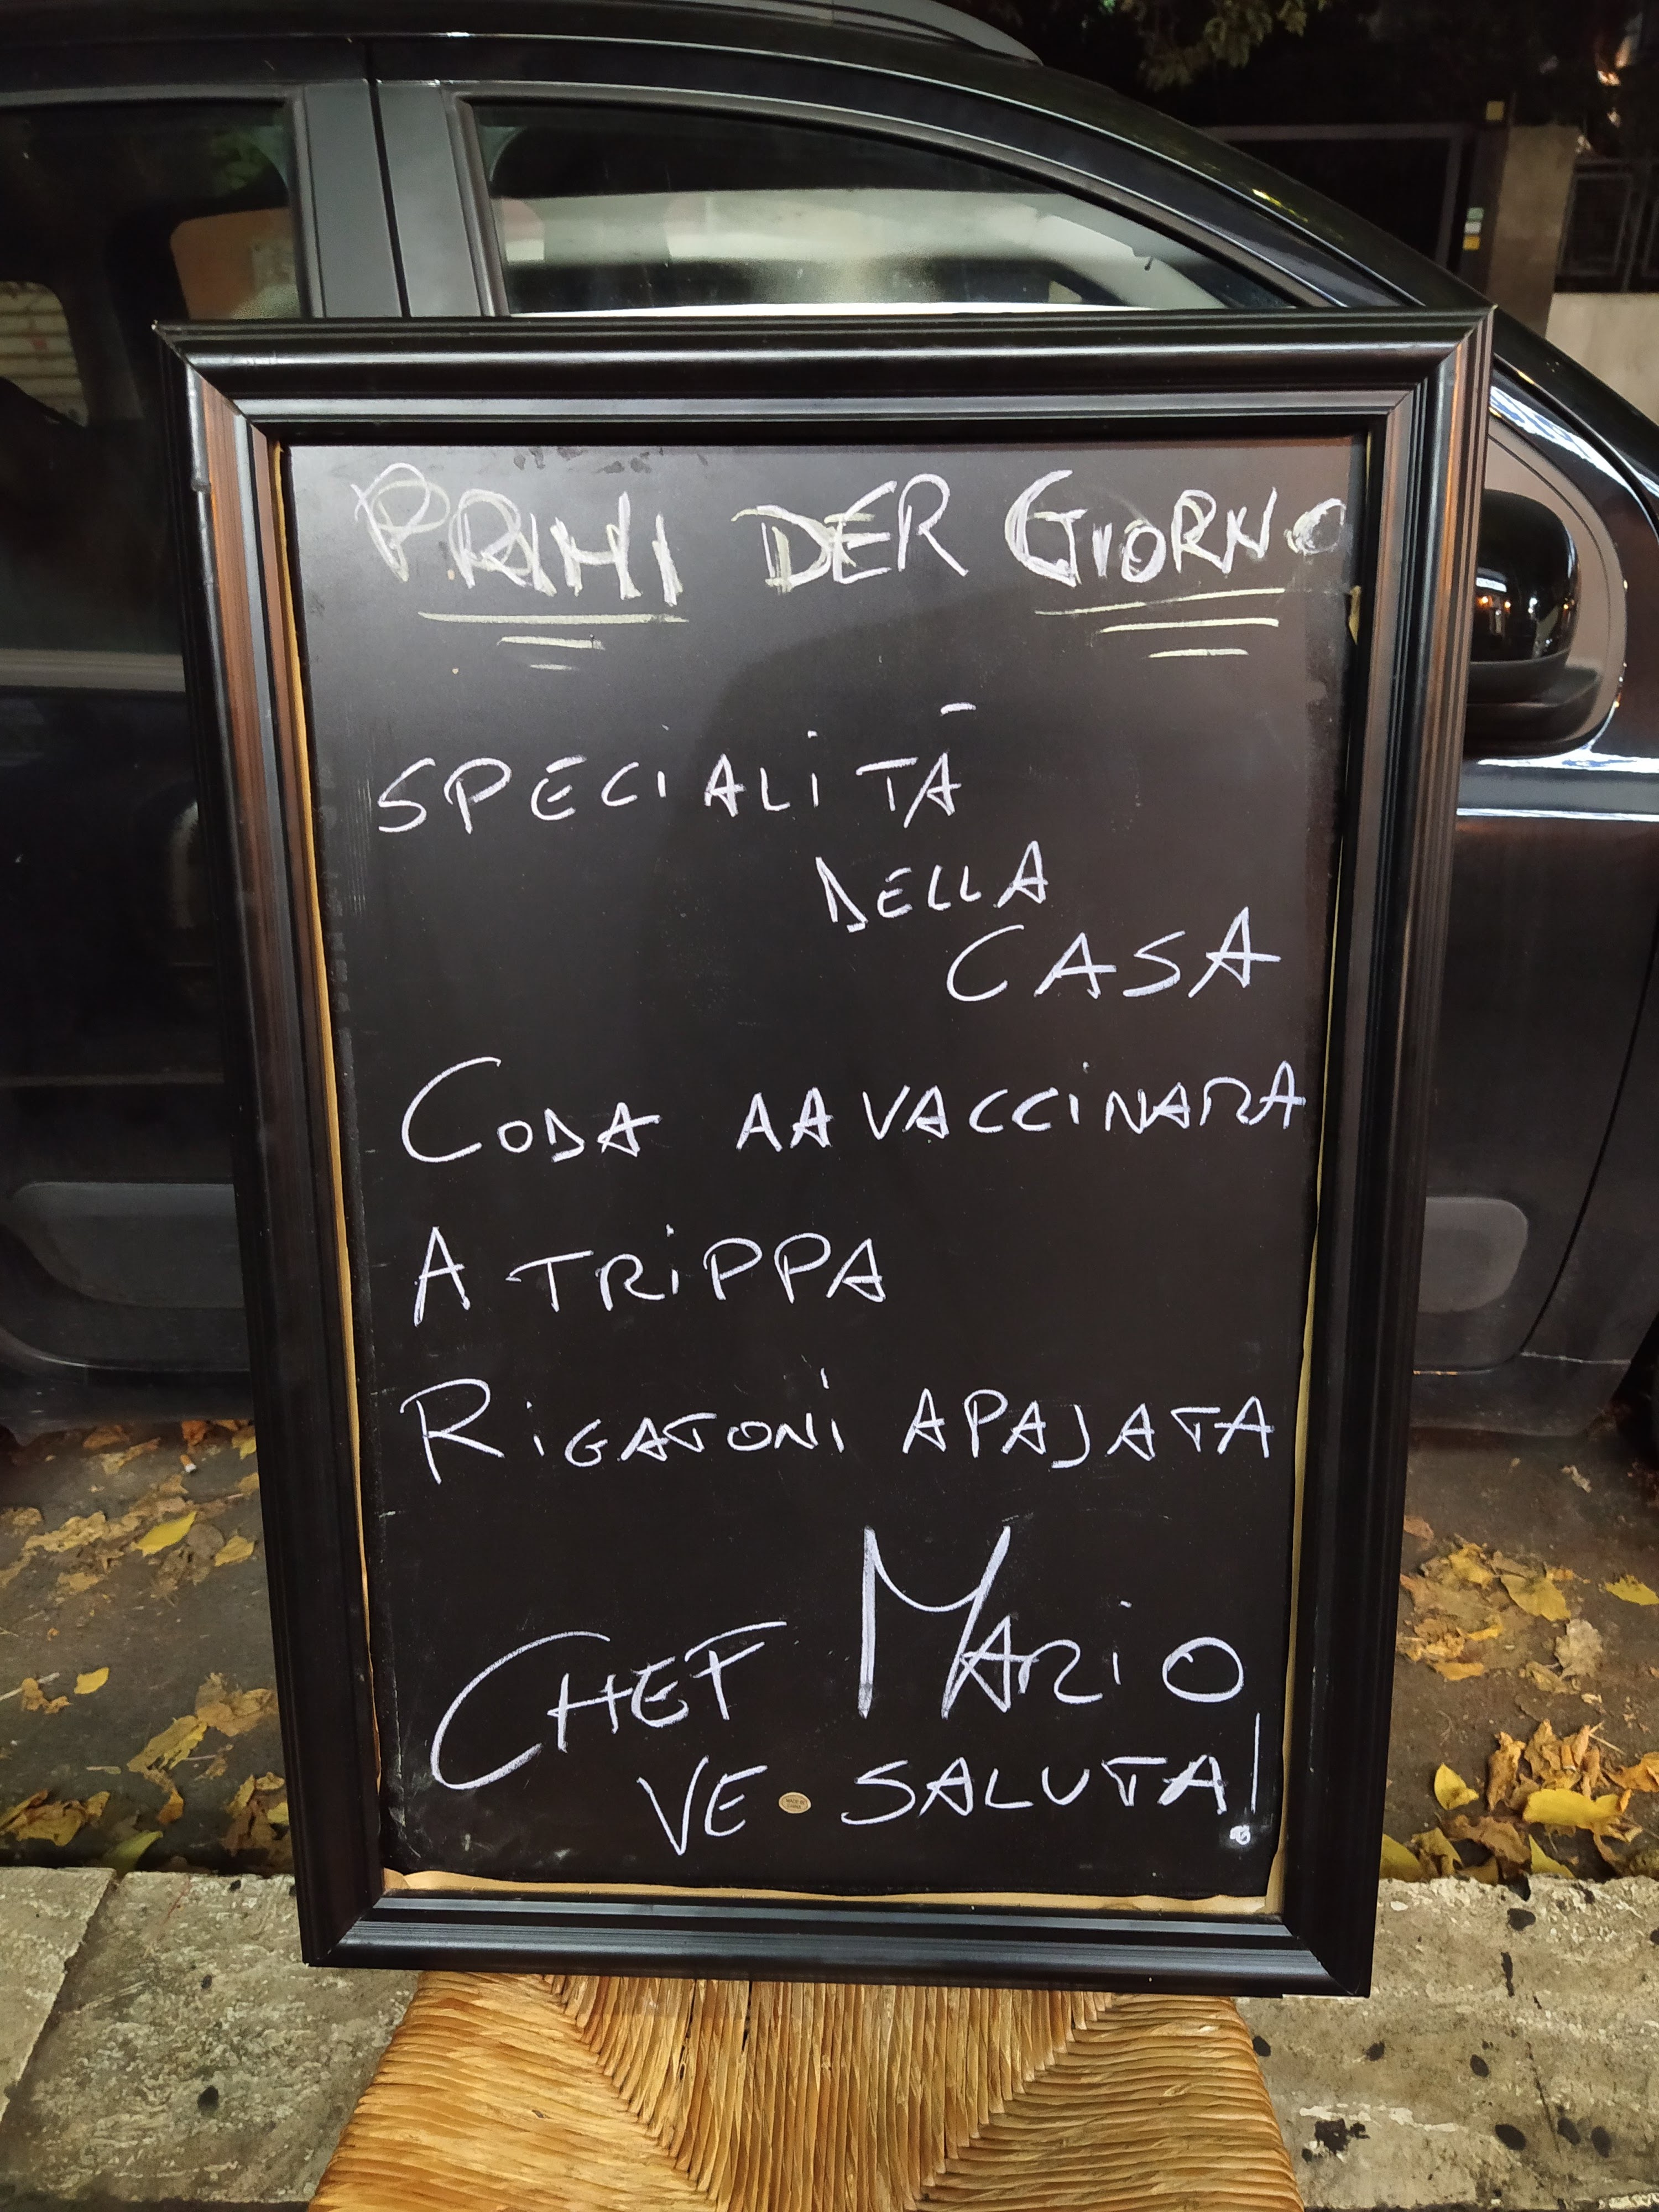 PRIMI DER GIORNO
SPECIALITÀ
DELLA
CASA
CODA AA VACCINARA
A TRIPPA
RiGATONi A PAJATA
CHEF MARiO
VE SALUTA!
MADE IN
CHINA